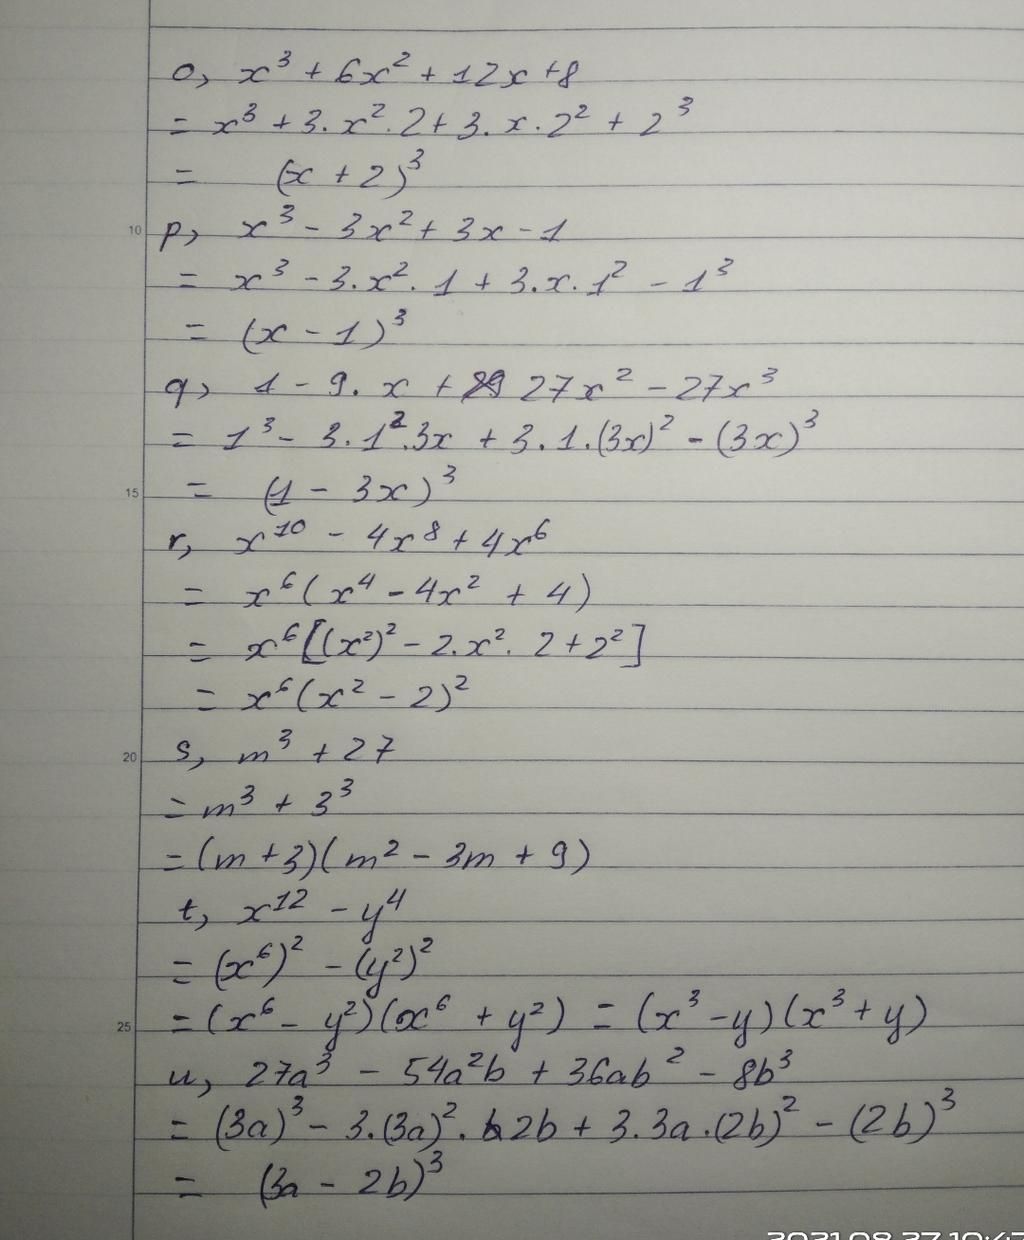 o, x³ + 6x² + 12x + 8
= x³ + 3. x². 2 + 3. x. 2² + 2³
= (x + 2)³
10 p, x³ - 3x² + 3x - 1
= x³ - 3. x². 1 + 3. x. 1² - 1³
= (x - 1)³
q, 1 - 9. x + 27x² - 27x³
= 1³ - 3. 1². 3x + 3. 1. (3x)² - (3x)³
15 = (1 - 3x)³
r, x¹⁰ - 4x⁸ + 4x⁶
= x⁶ (x⁴ - 4x² + 4)
= x⁶ [(x²)² - 2. x². 2 + 2²]
= x⁶ (x² - 2)²
20 s, m³ + 27
= m³ + 3³
= (m + 3)(m² - 3m + 9)
t, x¹² - y⁴
= (x⁶)² - (y²)²
25 = (x⁶ - y²)(x⁶ + y²) = (x³ - y)(x³ + y)
u, 27a³ - 54a²b + 36ab² - 8b³
= (3a)³ - 3. (3a)². 2b + 3. 3a. (2b)² - (2b)³
= (3a - 2b)³